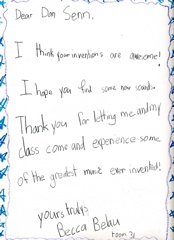 Dear Don Senn,
I think your inventions are awesome!
I hope you find some new sounds.
Thank you for letting me and my
class come and experience some
of the greatest music ever invented!
yours truly,
Becca
room 31